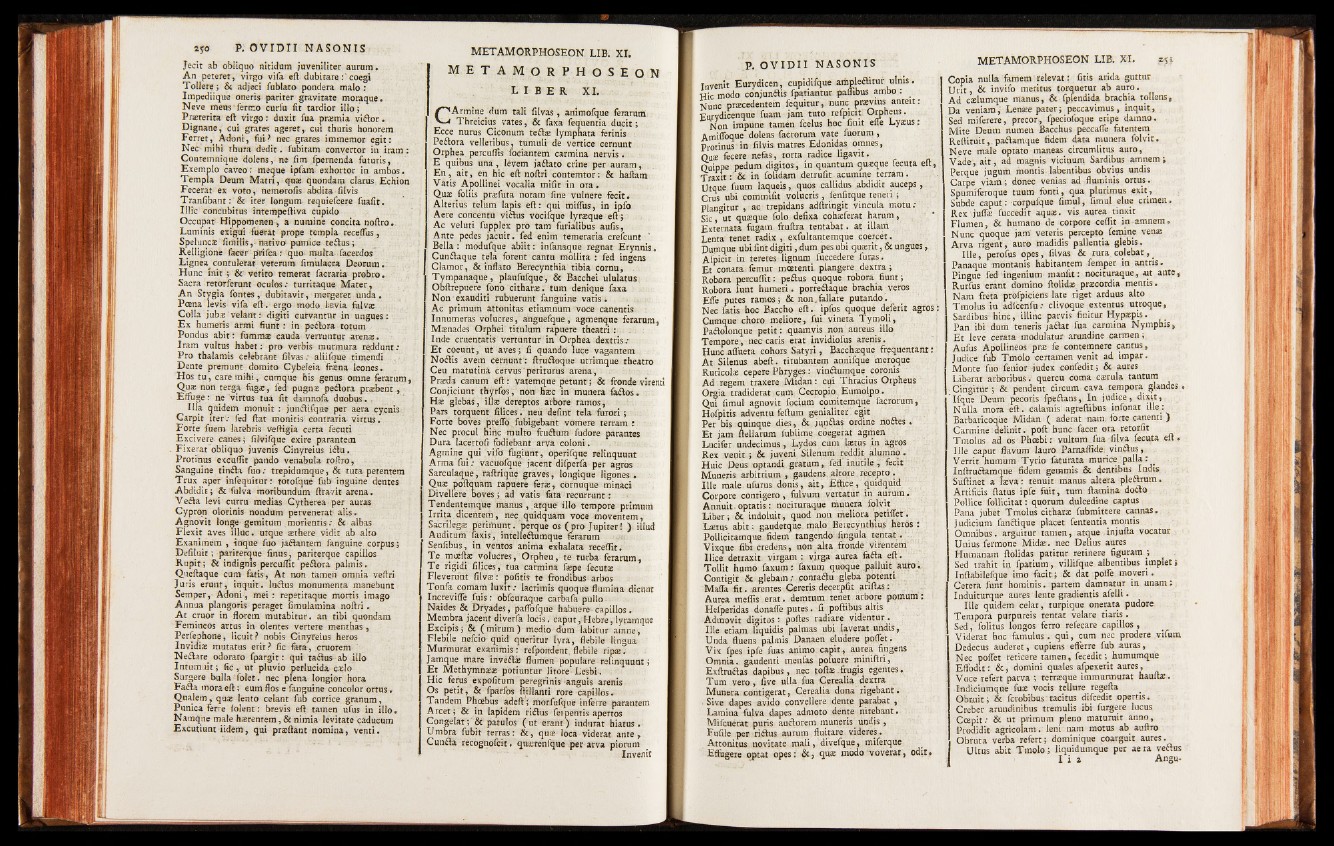 250 P. OVIDII NASONIS
Jecit ab obliquo nitidum juveniliter aurum.
An peteret, virgo visa est dubitare: coegi
Tollere; & adjeci sublato pondera malo:
Impediique oneris pariter gravitate moraque.
Neve meus sermo cursu sit tardior illo;
Præterita est virgo: duxit sua præmia victor.
Dignane, cui grates ageret, cui thuris honorem
Ferret, Adoni, fui? nec grates immemor egit:
Nec mihi thura dedit. subitam convertor in iram:
Contemnique dolens, ne sim spernenda futuris,
Exemplo caveo: meque ipsam exhortor in ambos.
Templa Deum Matri, quæ quondam clarus Echion
Fecerat ex voto, nemorosis abdita silvis
Transibant: & iter longum requiescere suasit.
Illic concubitus intempestiva cupido
Occupat Hippomenen, a numine concita nostro.
Luminis exigui fuerat prope templa recessus,
Speluncæ similis, nativo pumice tectus;
Relligione sacer prisca: quo multa sacerdos
Lignea contulerat veterum simulacra Deorum.
Hunc init; & vetito temerat sacraria probro.
Sacra retorserunt oculos: turritaque Mater,
An Stygia fontes, dubitavit, mergeret unda.
Pœna levis visa est. ergo modo lævia fulvæ
Colla jubæ velant: digiti curvantur in ungues:
Ex humeris armi fiunt: in pectora totum
Pondus abit: summæ cauda verruntur arenæ.
Iram vultus habet: pro verbis murmura reddunt:
Pro thalamis celebrant silvas: aliisque timendi
Dente premunt domito Cybeleia fræna leones.
Hos tu, care mihi, cumque his genus omne ferarum,
Quæ non terga fugæ, sed pugnæ pectora præbent,
Effuge: ne virtus tua sit damnosa duobus.
Illa quidem monuit: junctisque per aera cycnis
Carpit iter: sed stat monitis contraria virtus.
Forte suem latebris vestigia certa secuti
Excivere canes; silvisque exire parantem
Fixerat obliquo juvenis Cinyreius ictu.
Protinus excussit pando venabula rostro,
Sanguine tincta suo: trepidumque, & tuta petentem
Trux aper insequitur: totosque sub inguine dentes
Abdidit; & fulva moribundum stravit arena.
Vecta levi curru medias Cytherea per auras
Cypron olorinis nondum pervenerat alis.
Agnovit longe gemitum morientis: & albas
Flexit aves illuc. utque æthere vidit ab alto
Exanimem, inque suo jactantem sanguine corpus;
Desiluit; pariterque sinus, pariterque capillos
Rupit; & indignis percussit pectora palmis.
Questaque cum fatis, At non tamen omnia vestri
Juris erunt, inquit. luctus monumenta manebunt
Semper, Adoni, mei: repetitaque mortis imago
Annua plangoris peraget simulamina nostri.
At cruor in florem mutabitur. an tibi quondam
Femineos artus in olentes vertere menthas,
Persephone, licuit? nobis Cinyreius heros
Invidiæ mutatus erit? sic fata, cruorem
Nectare odorato spargit: qui tactus ab illo
Intumuit; sic, ut pluvio perlucida cælo
Surgere bulla solet. nec plena longior hora
Facta mora est: cum flos e sanguine concolor ortus.
Qualem, quæ lento celant sub cortice granum,
Punica ferre solent: brevis est tamen usus in illo.
Namque male hærentem, & nimia levitate caducum
Excutiunt iidem, qui præstant nomina, venti.
METAMORPHOSEON LIB. XI.
METAMORPHOSEON
LIBER XI.
CArmine dum tali silvas, animosque ferarum
Threicius vates, & saxa sequentia ducit;
Ecce nurus Ciconum tectæ lymphata ferinis
Pectora velleribus, tumuli de vertice cernunt
Orphea percussis sociantem carmina nervis.
E quibus una, levem jactato crine per auram,
En, ait, en hic est nostri contemtor: & hastam
Vatis Apollinei vocalia misit in ora.
Quæ foliis præsuta notam sine vulnere fecit.
Alterius telum lapis est: qui missus, in ipso
Aere concentu victus vocisque lyræque est;
Ac veluti supplex pro tam furialibus ausis,
Ante pedes jacuit. sed enim temeraria crescunt
Bella: modusque abiit: insanaque regnat Erynnis.
Cunctaque tela forent cantu mollita: sed ingens
Clamor, & inflato Berecynthia tibia cornu,
Tympanaque, plaususque, & Bacchei ululatus
Obstrepuere sono citharæ. tum denique saxa
Non exauditi rubuerunt sanguine vatis.
Ac primum attonitas etiamnum voce canentis
Innumeras volucres, anguesque, agmenque ferarum,
Mænades Orphei titulum rapuere theatri:
Inde cruentatis vertuntur in Orphea dextris:
Et coeunt, ut aves; si quando luce vagantem
Noctis avem cernunt: structoque utrimque theatro
Ceu matutina cervus periturus arena,
Præda canum est: vatemque petunt; & fronde virenti
Conjiciunt thyrsos, non hæc in munera factos.
Hæ glebas, illæ dereptos arbore ramos,
Pars torquent silices. neu desint tela furori;
Forte boves presso subigebant vomere terram:
Nec procul hinc multo fructum sudore parantes
Dura lacertosi fodiebant arva coloni.
Agmine qui viso fugiunt, operisque relinquunt
Arma sui: vacuosque jacent dispersa per agros
Sarculaque, rastrique graves, longique ligones.
Quæ postquam rapuere feræ, cornuque minaci
Divellere boves; ad vatis fata recurrunt:
Tendentemque manus, atque illo tempore primum
Irrita dicentem, nec quidquam voce moventem,
Sacrilegæ perimunt. perque os (pro Jupiter!) illud
Auditum saxis, intellectumque ferarum
Sensibus, in ventos anima exhalata recessit.
Te mœstæ volucres, Orpheu, te turba ferarum,
Te rigidi silices, tua carmina sæpe secutæ
Fleverunt silvæ: positis te frondibus arbos
Tonsa comam luxit: lacrimis quoque flumina dicunt
Increvisse suis: obscuraque carbasa pullo
Naides & Dryades, passosque habuere capillos.
Membra jacent diversa locis. caput, Hebre, lyramque
Excipis; & (mirum) medio dum labitur amne,
Flebile nescio quid queritur lyra, flebile lingua
Murmurat exanimis: respondent flebile ripæ.
Jamque mare invectæ flumen populare relinquunt;
Et Methymnææ potiuntur litore Lesbi.
Hic ferus expositum peregrinis anguis arenis
Os petit, & sparsos stillanti rore capillos.
Tandem Phœbus adest; morsusque inferre parantem
Arcet; & in lapidem rictus serpentis apertos
Congelat; & patulos (ut erant) indurat hiatus.
Umbra subit terras: &, quæ loca viderat ante,
Cuncta recognoscit. quærensque per arva piorum
Invenit
P. OVIDII NASONIS
Invenit Eurydicen, cupidisque amplectitur ulnis.
Hic modo conjunctis spatiantur passibus ambo:
Nunc præcedentem sequitur, nunc prævius anteit:
Eurydicenque suam jam tuto respicit Orpheus.
Non impune tamen scelus hoc sinit esse Lyæus:
Amissoque dolens sacrorum vate suorum,
Protinus in silvis matres Edonidas omnes,
Quæ fecere nefas, torta radice ligavit.
Quippe pedum digitos, in quantum quæque secuta est,
Traxit: & in solidam detrusit acumine terram.
Utque suum laqueis, quos callidus abdidit auceps,
Crus ubi commisit volucris, sensitque teneri,
Plangitur, ac trepidans adstringit vincula motu:
Sic, ut quæque solo defixa cohæserat harum,
Externata fugam frustra tentabat. at illam
Lenta tenet radix, exsultantemque coercet.
Dumque ubi sint digiti, dum pes ubi quærit, & ungues,
Alpicit in teretes lignum succedere suras.
Et conata femur mœrenti plangere dextra;
Robora percussit: pectus quoque robora fiunt;
Robora sunt humeri. porrectaque brachia veros
Esse putes ramos; & non fallare putando.
Nec satis hoc Baccho est. ipsos quoque deserit agros:
Cumque choro meliore, sui vineta Tymoli,
Pactolonque petit: quamvis non aureus illo
Tempore, nec caris erat invidiosus arenis.
Hunc assueta cohors Satyri, Bacchæque frequentant:
At Silenus abest. titubantem annisque meroque
Ruricolæ cepere Phryges: vinctumque coronis
Ad regem traxere Midan: cui Thracius Orpheus
Orgia tradiderat cum Cecropio Eumolpo.
Qui simul agnovit socium comitemque sacrorum,
Hospitis adventu festum genialiter egit
Per bis quinque dies, & junctas ordine noctes.
Et jam stellarum sublime coegerat agmen
Lucifer undecimus, Lydos cum lætus in agros
Rex venit; & juveni Silenum reddit alumno.
Huic Deus optandi gratum, sed inutile, fecit
Muneris arbitrium, gaudens altore recepto.
Ille male usurus donis, ait, Effice, quidquid
Corpore contigero, fulvum vertatur in aurum.
Annuit optatis: nocituraque munera solvit
Liber; & indoluit, quod non meliora petisset.
Lætus abit: gaudetque malo Berecynthius heros:
Pollicitamque fidem tangendo singula tentat.
Vixque sibi credens, non alta fronde virentem
Ilice detraxit virgam: virga aurea facta est.
Tollit humo saxum: saxum quoque palluit auro.
Contigit & glebam: contactu gleba potenti
Massa fit. arentes Cereris decerpsit aristas:
Aurea messis erat. demtum tenet arbore pomum:
Hesperidas donasse putes. si postibus altis
Admovit digitos: postes radiare videntur.
Ille etiam liquidis palmas ubi laverat undis,
Unda fluens palmis Danaen eludere posset.
Vix spes ipse suas animo capit, aurea fingens
Omnia. gaudenti mensas posuere ministri,
Exstructas dapibus, nec tostæ frugis egentes.
Tum vero, sive ulla sua Cerealia dextra
Munera contigerat, Cerealia dona rigebant.
Sive dapes avido convellere dente parabat,
Lamina fulva dapes admoto dente nitebant.
Miscuerat puris auctorem muneris undis,
Fusile per rictus aurum fluitare videres.
Attonitus novitate mali, divesque, miserque
Effugere optat opes: &, quæ modo voverat, odit.
METAMORPHOSEON LIB. XI. 251
Copia nulla famem relevat: sitis arida guttur
Urit, & inviso meritus torquetur ab auro.
Ad cælumque manus, & splendida brachia tollens,
Da veniam, Lenæe pater; peccavimus, inquit,
Sed miserere, precor, speciosoque eripe damno.
Mite Deum numen Bacchus peccasse fatentem
Restituit, pactamque fidem data munera solvit.
Neve male optato maneas circumlitus auro,
Vade, ait, ad magnis vicinum Sardibus amnem;
Perque jugum montis labentibus obvius undis
Carpe viam; donec venias ad fluminis ortus.
Spumiferoque tuum fonti, qua plurimus exit,
Subde caput: corpusque simul, simul elue crimen.
Rex jussæ succedit aquæ. vis aurea tinxit
Flumen, & humano de corpore cessit in amnem.
Nunc quoque jam veteris percepto semine venæ
Arva rigent, auro madidis pallentia glebis.
Ille, perosus opes, silvas & rura colebat,
Panaque montanis habitantem semper in antris.
Pingue sed ingenium mansit: nocituraque, ut ante,
Rursus erant domino stolidæ præcordia mentis.
Nam freta prospiciens late riget arduus alto
Tmolus in adscensu: clivoque extentus utroque,
Sardibus hinc, illinc parvis finitur Hypæpis.
Pan ibi dum teneris jactat sua carmina Nymphis,
Et leve cerata modulatur arundine carmen;
Ausus Apollineos præ se contemnere cantus,
Judice sub Tmolo certamen venit ad impar.
Monte suo senior judex consedit; & aures
Liberat arboribus. quercu coma cærula tantum
Cingitur; & pendent circum cava tempora glandes.
Isque Deum pecoris spectans, In judice, dixit,
Nulla mora est. calamis agrestibus insonat ille:
Barbaricoque Midan (aderat nam forte canenti)
Carmine delinit. post hunc sacer ora retorsit
Tmolus ad os Phœbi: vultum sua silva secuta est.
Ille caput flavum lauro Parnasside vinctus,
Verrit humum Tyrio saturata murice palla:
Instructamque fidem gemmis & dentibus Indis
Sustinet a læva: tenuit manus altera plectrum.
Artificis status ipse fuit. tum stamina docto
Pollice sollicitat: quorum dulcedine captus
Pana jubet Tmolus citharæ submittere cannas.
Judicium sanctique placet sententia montis
Omnibus. arguitur tamen, atque injusta vocatur
Unius sermone Midæ. nec Delius aures
Humanam stolidas patitur retinere figuram;
Sed trahit in spatium, villisque albentibus implet;
Instabilesque imo facit; & dat posse moveri.
Cetera sunt hominis. partem damnatur in unam:
Induiturque aures lente gradientis aselli.
Ille quidem celat, turpique onerata pudore
Tempora purpureis tentat velare tiaris.
Sed, solitus longos ferro resecare capillos,
Viderat hoc famulus. qui, cum nec prodere visum
Dedecus auderet, cupiens efferre sub auras,
Nec posset reticere tamen, secedit: humumque
Effodit: &, domini quales aspexerit aures,
Voce refert parva; terræque immurmurat haustæ.
Indiciumque suæ vocis tellure regesta
Obruit; & scrobibus tacitus discedit opertis.
Creber arundinibus tremulis ibi surgere lucus
Cœpit: & ut primum pleno maturuit anno,
Prodidit agricolam. leni nam motus ab austro
Obruta verba refert; dominique coarguit aures.
Ultus abit Tmolo; liquidumque per aera vectus
I i 2 Angu-